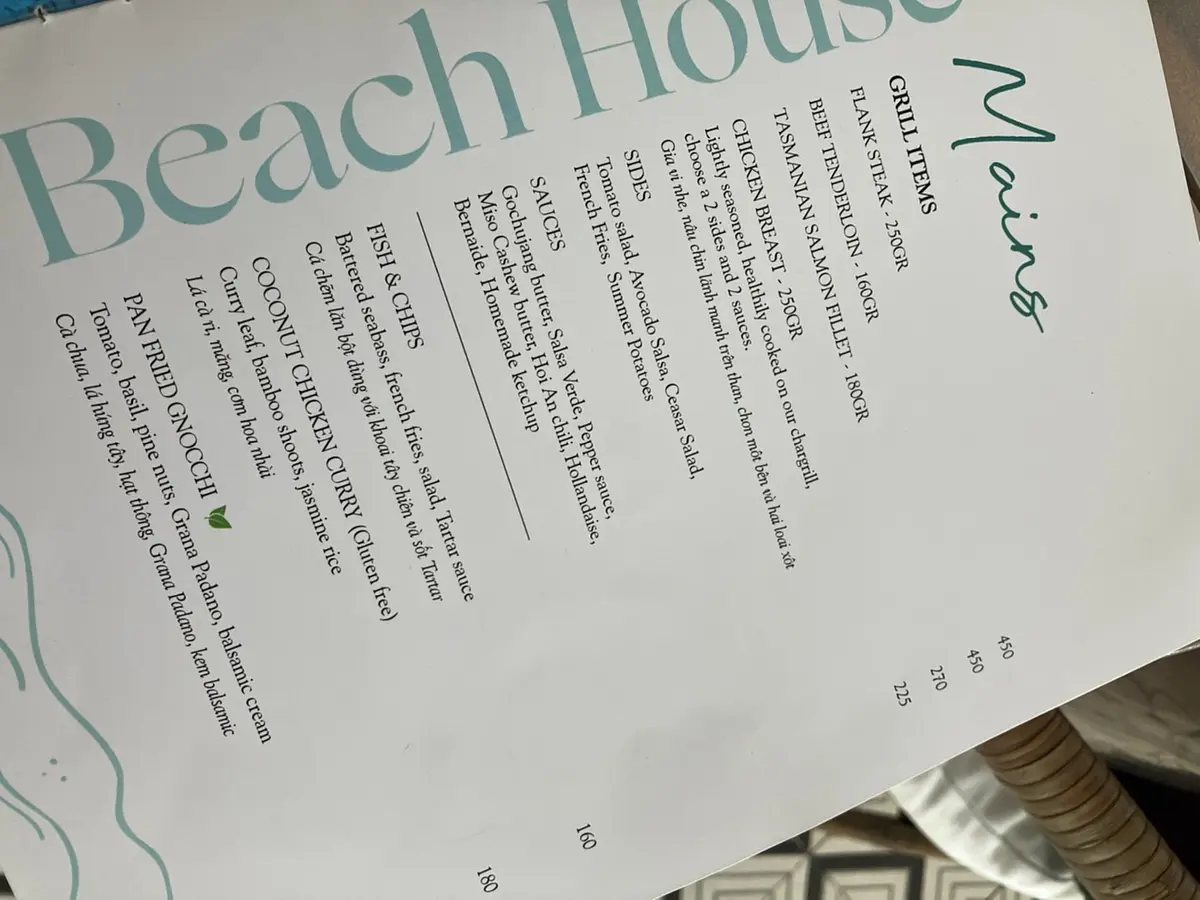 Beach House
Mains
GRILL ITEMS
FLANK STEAK - 250GR 450
BEEF TENDERLOIN - 160GR 450
TASMANIAN SALMON FILLET - 180GR 270
CHICKEN BREAST - 250GR 225
Lightly seasoned, healthily cooked on our chargrill,
choose a 2 sides and 2 sauces.
Gia vi nhe, nâu chin lãnh manh trên than, chon môt bên và hai loai xôt
SIDES
Tomato salad, Avocado Salsa, Ceasar Salad,
French Fries, Summer Potatoes
SAUCES
Gochujang butter, Salsa Verde, Pepper sauce,
Miso Cashew butter, Hoi An chili, Hollandaise,
Bernaide, Homemade ketchup
FISH & CHIPS 160
Battered seabass, french fries, salad, Tartar sauce
Cá chẽm lăn bột dùng với khoai tây chiên và sốt Tartar
COCONUT CHICKEN CURRY (Gluten free) 180
Curry leaf, bamboo shoots, jasmine rice
Lá cà ri, măng, cơm hoa nhài
PAN FRIED GNOCCHI
Tomato, basil, pine nuts, Grana Padano, balsamic cream
Cà chua, lá húng tây, hạt thông, Grana Padano, kem balsamic